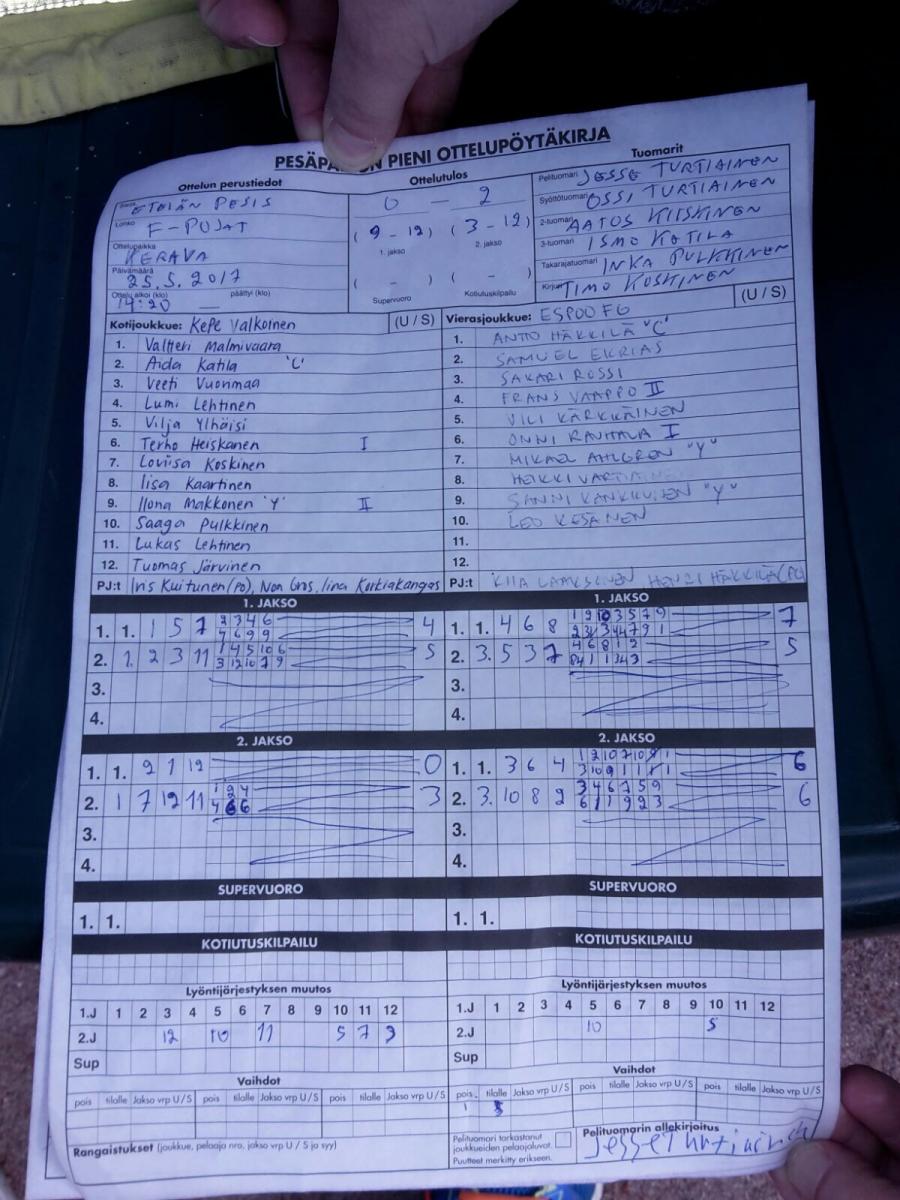 PESÄPALLON PIENI OTTELUPÖYTÄKIRJA
Ottelun perustiedot
ETELÄN PESIS
Lohko F-POJAT
Ottelupaikka KERAVA
Päivämäärä 25.5.2017
Ottelu alkoi (klo) 14:20 päättyi (klo) —
Ottelutulos
0 - 2
(9-12) (3-12)
1. jakso 2. jakso
( - ) ( - )
Supervuoro Kotiutuskilpailu
Tuomarit
Pelituomari JESSE TURTIAINEN
Syöttötuomari OSSI TURTIAINEN
2-tuomari AATOS KIISKINEN
3-tuomari ISMO KOTILA
Takarajatuomari INKA PULKKINEN
Kirjuri TIMO KOSKINEN
Kotijoukkue: KePe Valkoinen (U / S)
1. Valtteri Malmivaara
2. Aida Katila 'C'
3. Veeti Vuormaa
4. Lumi Lehtinen
5. Vilja Ylhäisi
6. Terho Heiskanen I
7. Loviisa Koskinen
8. Iisa Kaartinen
9. Ilona Makkonen 'Y' II
10. Saaga Pulkkinen
11. Lukas Lehtinen
12. Tuomas Järvinen
PJ:t Iris Kuitunen (PO), Non Gros, Iina Korkiakangas
Vierasjoukkue: ESPOO FG (U / S)
1. ANTTO HÄKKILÄ "C"
2. SAMUEL EKRIAS
3. SAKARI ROSSI
4. FRANS VAAPPO II
5. VILI KÄRKKÄINEN
6. ONNI RAUHALA I
7. MIKAEL AHLGREN "Y"
8. HEIKKI VARTIAINEN
9. SANNI KANKKUNEN "Y"
10. LEO KESÄNEN
11.
12.
PJ:t KIIA LAAKSONEN HENRI HÄKKILÄ (PO)
1. JAKSO
1. 1. 1 5 7 2 3 4 6 4
4 6 9 9
2. 1. 2 3 11 1 4 5 10 6 5
3 12 10 7 9
3.
4.
1. JAKSO
1. 1. 4 6 8 1 2 10 3 5 7 9 7
2. 3. 5 3 7 4 6 8 1 2 5
3.
4.
2. JAKSO
1. 1. 2 7 12 0
2. 1 7 12 11 1 2 4 3
4 6 6
3.
4.
2. JAKSO
1. 1. 3 6 4 6
3 10 9 1 1 1 1
2. 3. 10 8 2 3 4 6 7 5 9 6
6 1 1 9 2 3
3.
4.
SUPERVUORO
1. 1.
SUPERVUORO
1. 1.
KOTIUTUSKILPAILU
KOTIUTUSKILPAILU
Lyöntijärjestyksen muutos
1.J 1 2 3 4 5 6 7 8 9 10 11 12
2.J 12 10 11 5 7 3
Sup
Lyöntijärjestyksen muutos
1.J 1 2 3 4 5 6 7 8 9 10 11 12
2.J 10 5
Sup
Vaihdot
pois tilalle Jakso vrp U / S pois tilalle Jakso vrp U / S pois tilalle Jakso vrp U / S
Vaihdot
pois tilalle Jakso vrp U / S pois tilalle Jakso vrp U / S pois tilalle Jakso vrp U / S
Rangaistukset (joukkue, pelaaja nro, jakso vrp U / S ja syy)
Pelituomari tarkastanut
joukkueiden pelaajaluvat.
Puutteet merkitty erikseen.
Pelituomarin allekirjoitus
Jesse Turtiainen